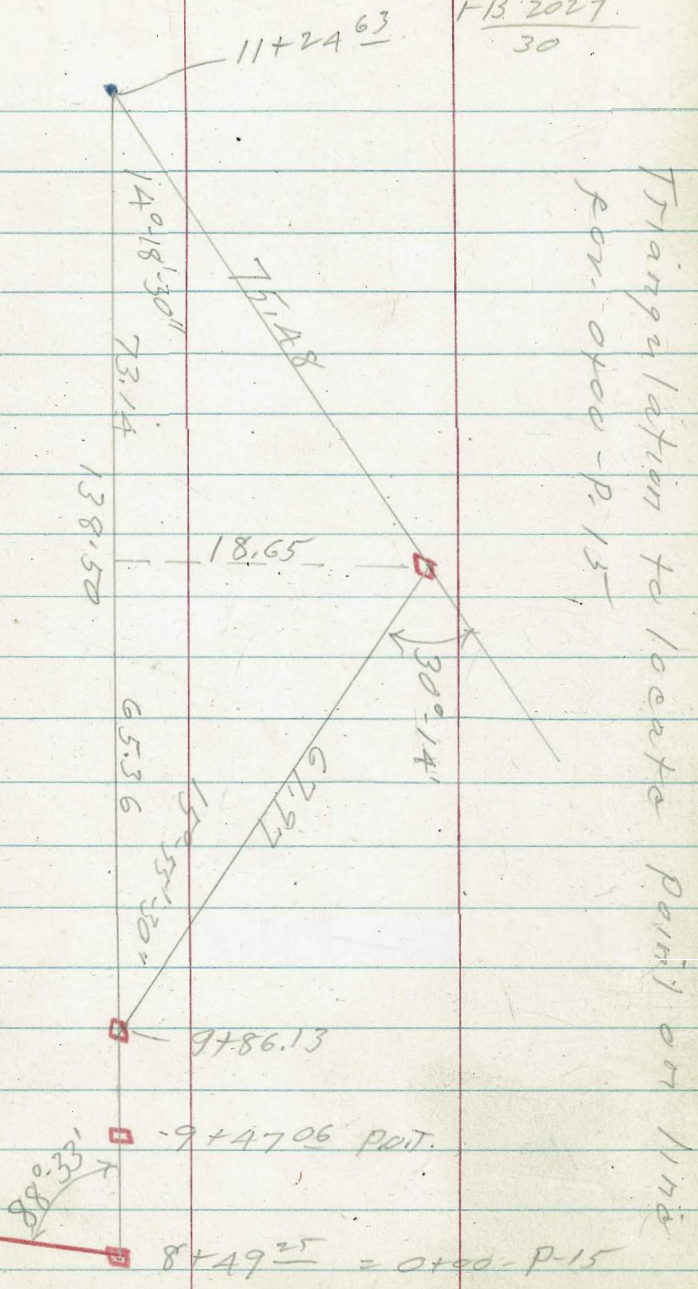 FB. 2027
30
11+24 63
Triangulation to locate point on line
for. 0+00 - P. 15
14°-18'-30"
75.48
73.14
138.50
18.65
30°-14'
65.36
67.97
15°-55'-30"
9+86.13
9+47 06 P.O.T.
88°-33'
8+49 25 = 0+00 - P-15